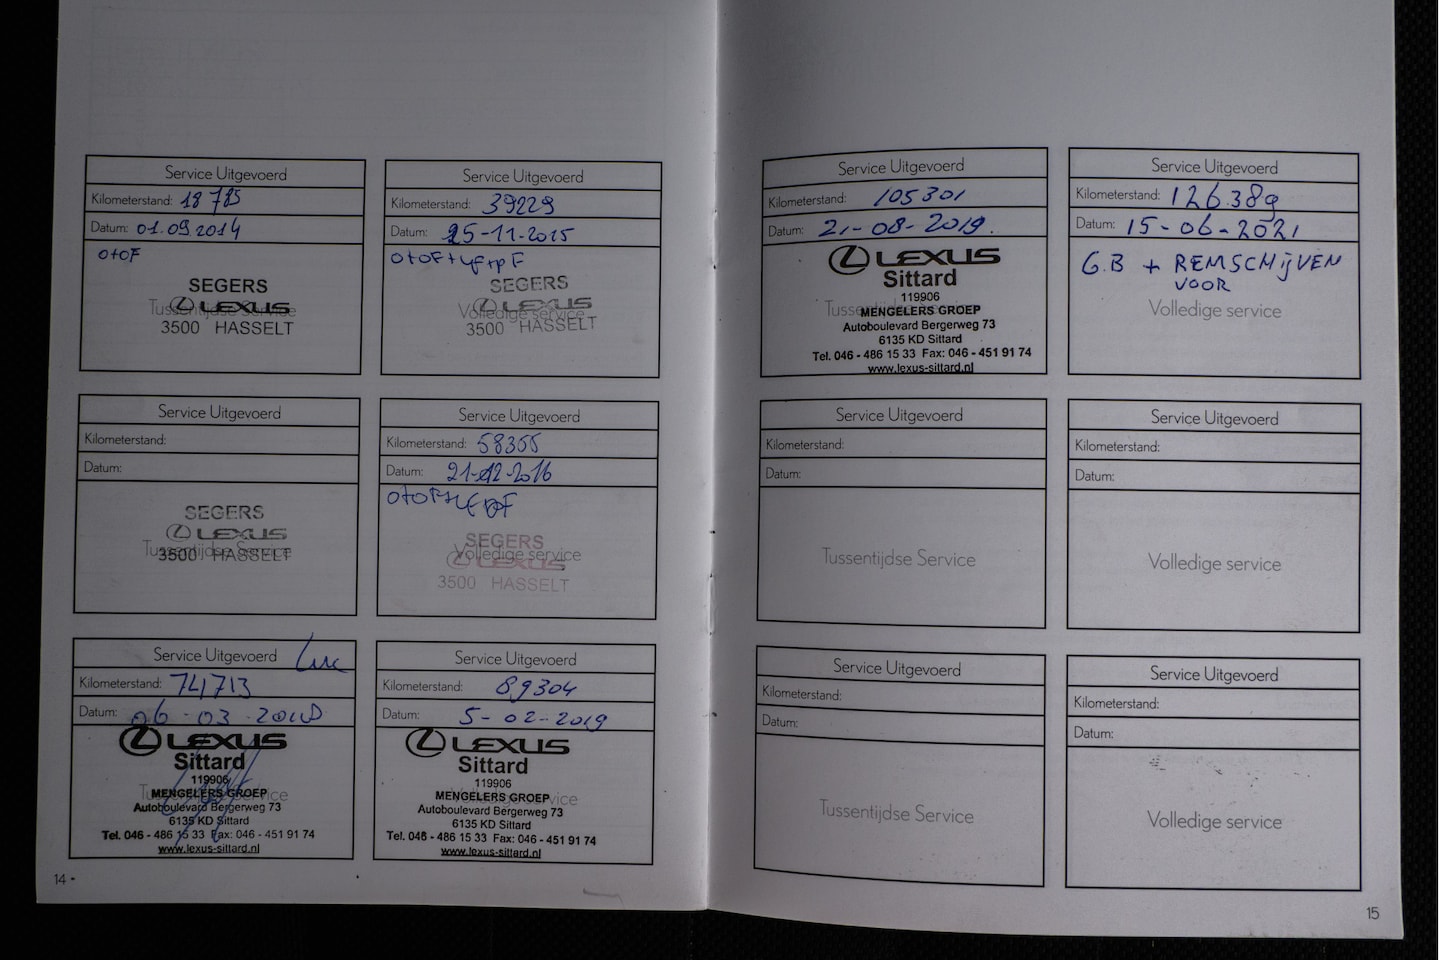 Service Uitgevoerd
Kilometerstand: 18 785
Datum: 01.09.2014
O+OF
SEGERS
LEXUS
Tussentijdse Service
3500 HASSELT
Service Uitgevoerd
Kilometerstand: 39229
Datum: 25-11-2015
SEGERS
LEXUS
Volledige service
3500 HASSELT
Service Uitgevoerd
Kilometerstand:
Datum:
SEGERS
LEXUS
Tussentijdse Service
3500 HASSELT
Service Uitgevoerd
Kilometerstand: 58355
Datum: 21-12-2016
SEGERS
Volledige service
LEXUS
3500 HASSELT
Service Uitgevoerd
Kilometerstand: 74713
Datum: 06-03-2018
LEXUS
Sittard
119906
MENGELERS GROEP
Tussentijdse Service
Autoboulevard Bergerweg 73
6135 KD Sittard
Tel. 046 - 486 15 33 Fax: 046 - 451 91 74
www.lexus-sittard.nl
Service Uitgevoerd
Kilometerstand: 89304
Datum: 5-02-2019
LEXUS
Sittard
119906
MENGELERS GROEP
Volledige service
Autoboulevard Bergerweg 73
6135 KD Sittard
Tel. 046 - 486 15 33 Fax: 046 - 451 91 74
www.lexus-sittard.nl
14
Service Uitgevoerd
Kilometerstand: 105301
Datum: 21-08-2019.
LEXUS
Sittard
119906
Tussentijdse Service
MENGELERS GROEP
Autoboulevard Bergerweg 73
6135 KD Sittard
Tel. 046 - 486 15 33 Fax: 046 - 451 91 74
www.lexus-sittard.nl
Service Uitgevoerd
Kilometerstand: 126.389
Datum: 15-06-2021
G.B + REMSCHIJVEN
VOOR
Volledige service
Service Uitgevoerd
Kilometerstand:
Datum:
Tussentijdse Service
Service Uitgevoerd
Kilometerstand:
Datum:
Volledige service
Service Uitgevoerd
Kilometerstand:
Datum:
Tussentijdse Service
Service Uitgevoerd
Kilometerstand:
Datum:
Volledige service
15